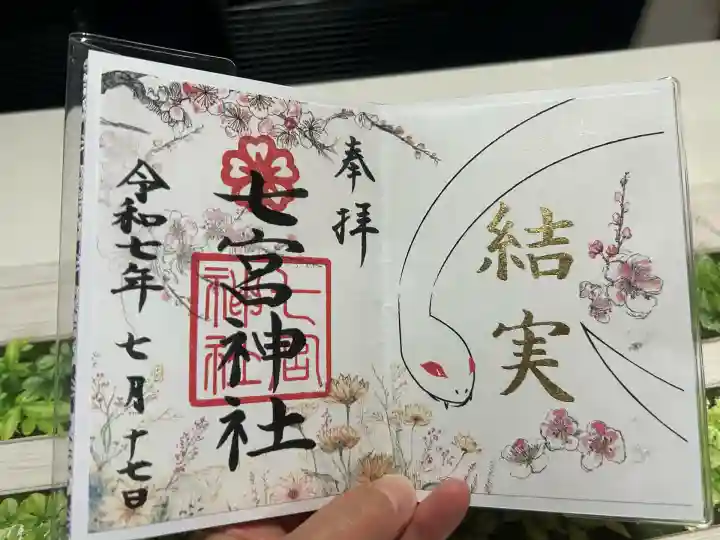 奉拝
七宮神社
七宮
神社
令和七年 七月 十七日
結実